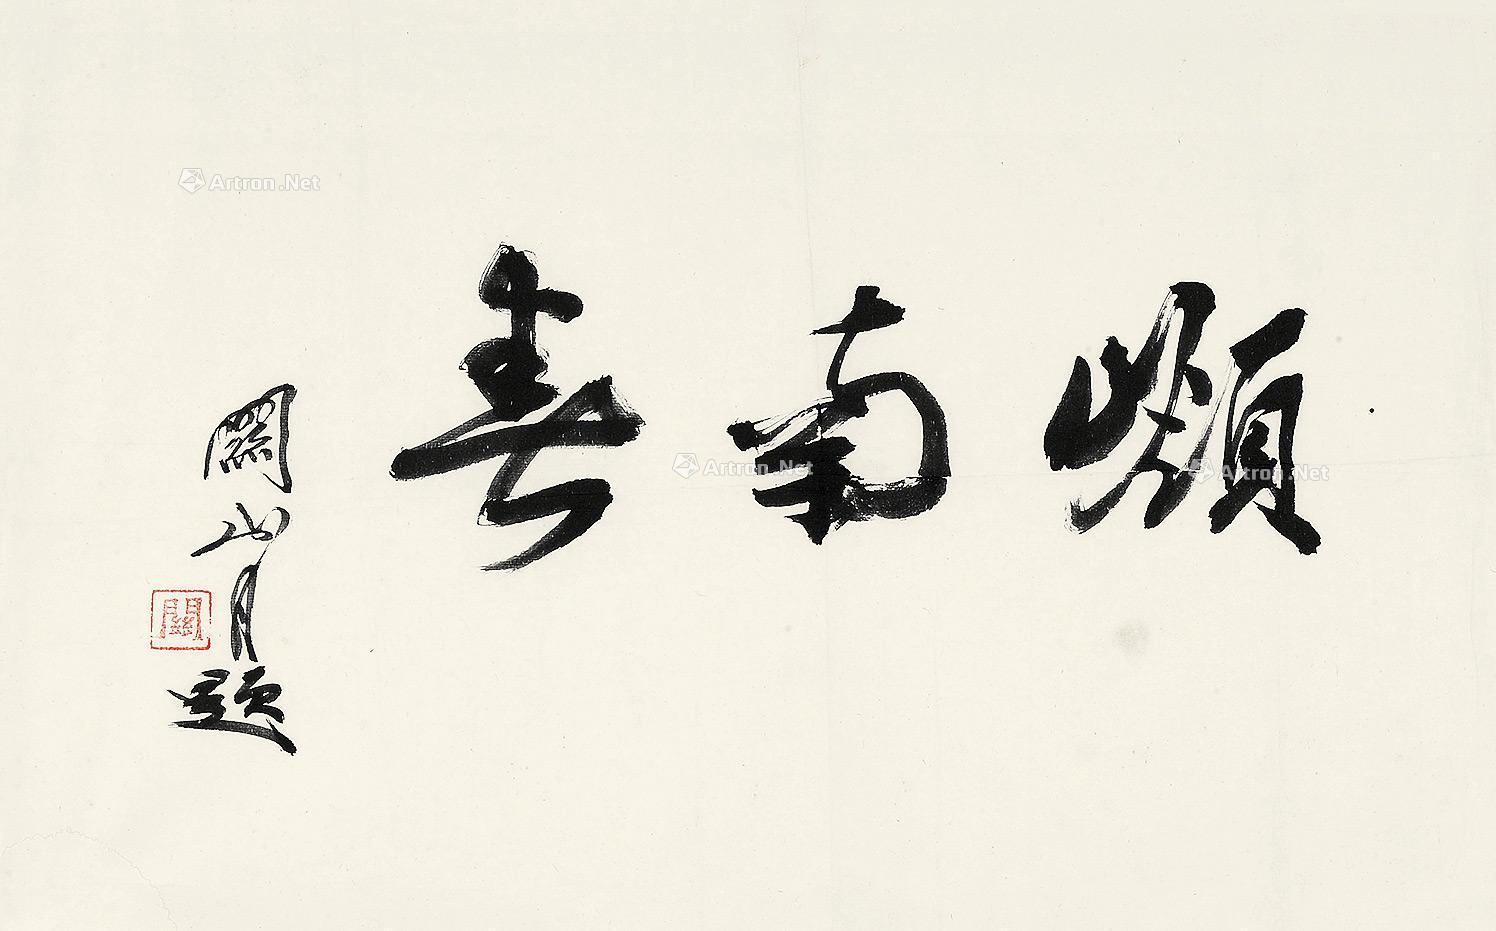 嶺南
關山月題
關
Artron.Net
Artron.Net
Artron.Net